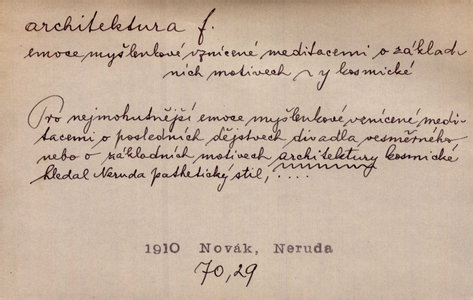 architektura f.
emoce myšlenkové vznícené meditacemi o základ-
ních motivech ~y kosmické
Pro nejmohutnější emoce myšlenkové vznícené medi-
tacemi o posledních dějstvech divadla vesmírného
nebo o základních motivech architektury kosmické
hledal Neruda pathetický stil, ....
1910 Novák, Neruda
70,29